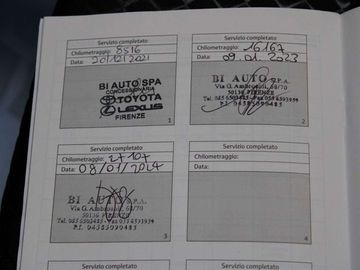 Servizio completato
Chilometraggio: 8516
Data: 20/12/2021
BI AUTO SPA
CONCESSIONARIA
TOYOTA
LEXUS
FIRENZE
1
Servizio completato
Chilometraggio: 16167
Data: 09.01.2023
BI AUTO S.P.A.
Via G. Ambrosoli, 68/70
50136 FIRENZE
2
Servizio completato
Chilometraggio: 27107
Data: 08/01/2024
BI AUTO S.P.A.
Via G. Ambrosoli, 68/70
50136 FIRENZE
P.I. 04585090485
3
Servizio completato
Chilometraggio:
Data:
4
Servizio completato
Servizio completato